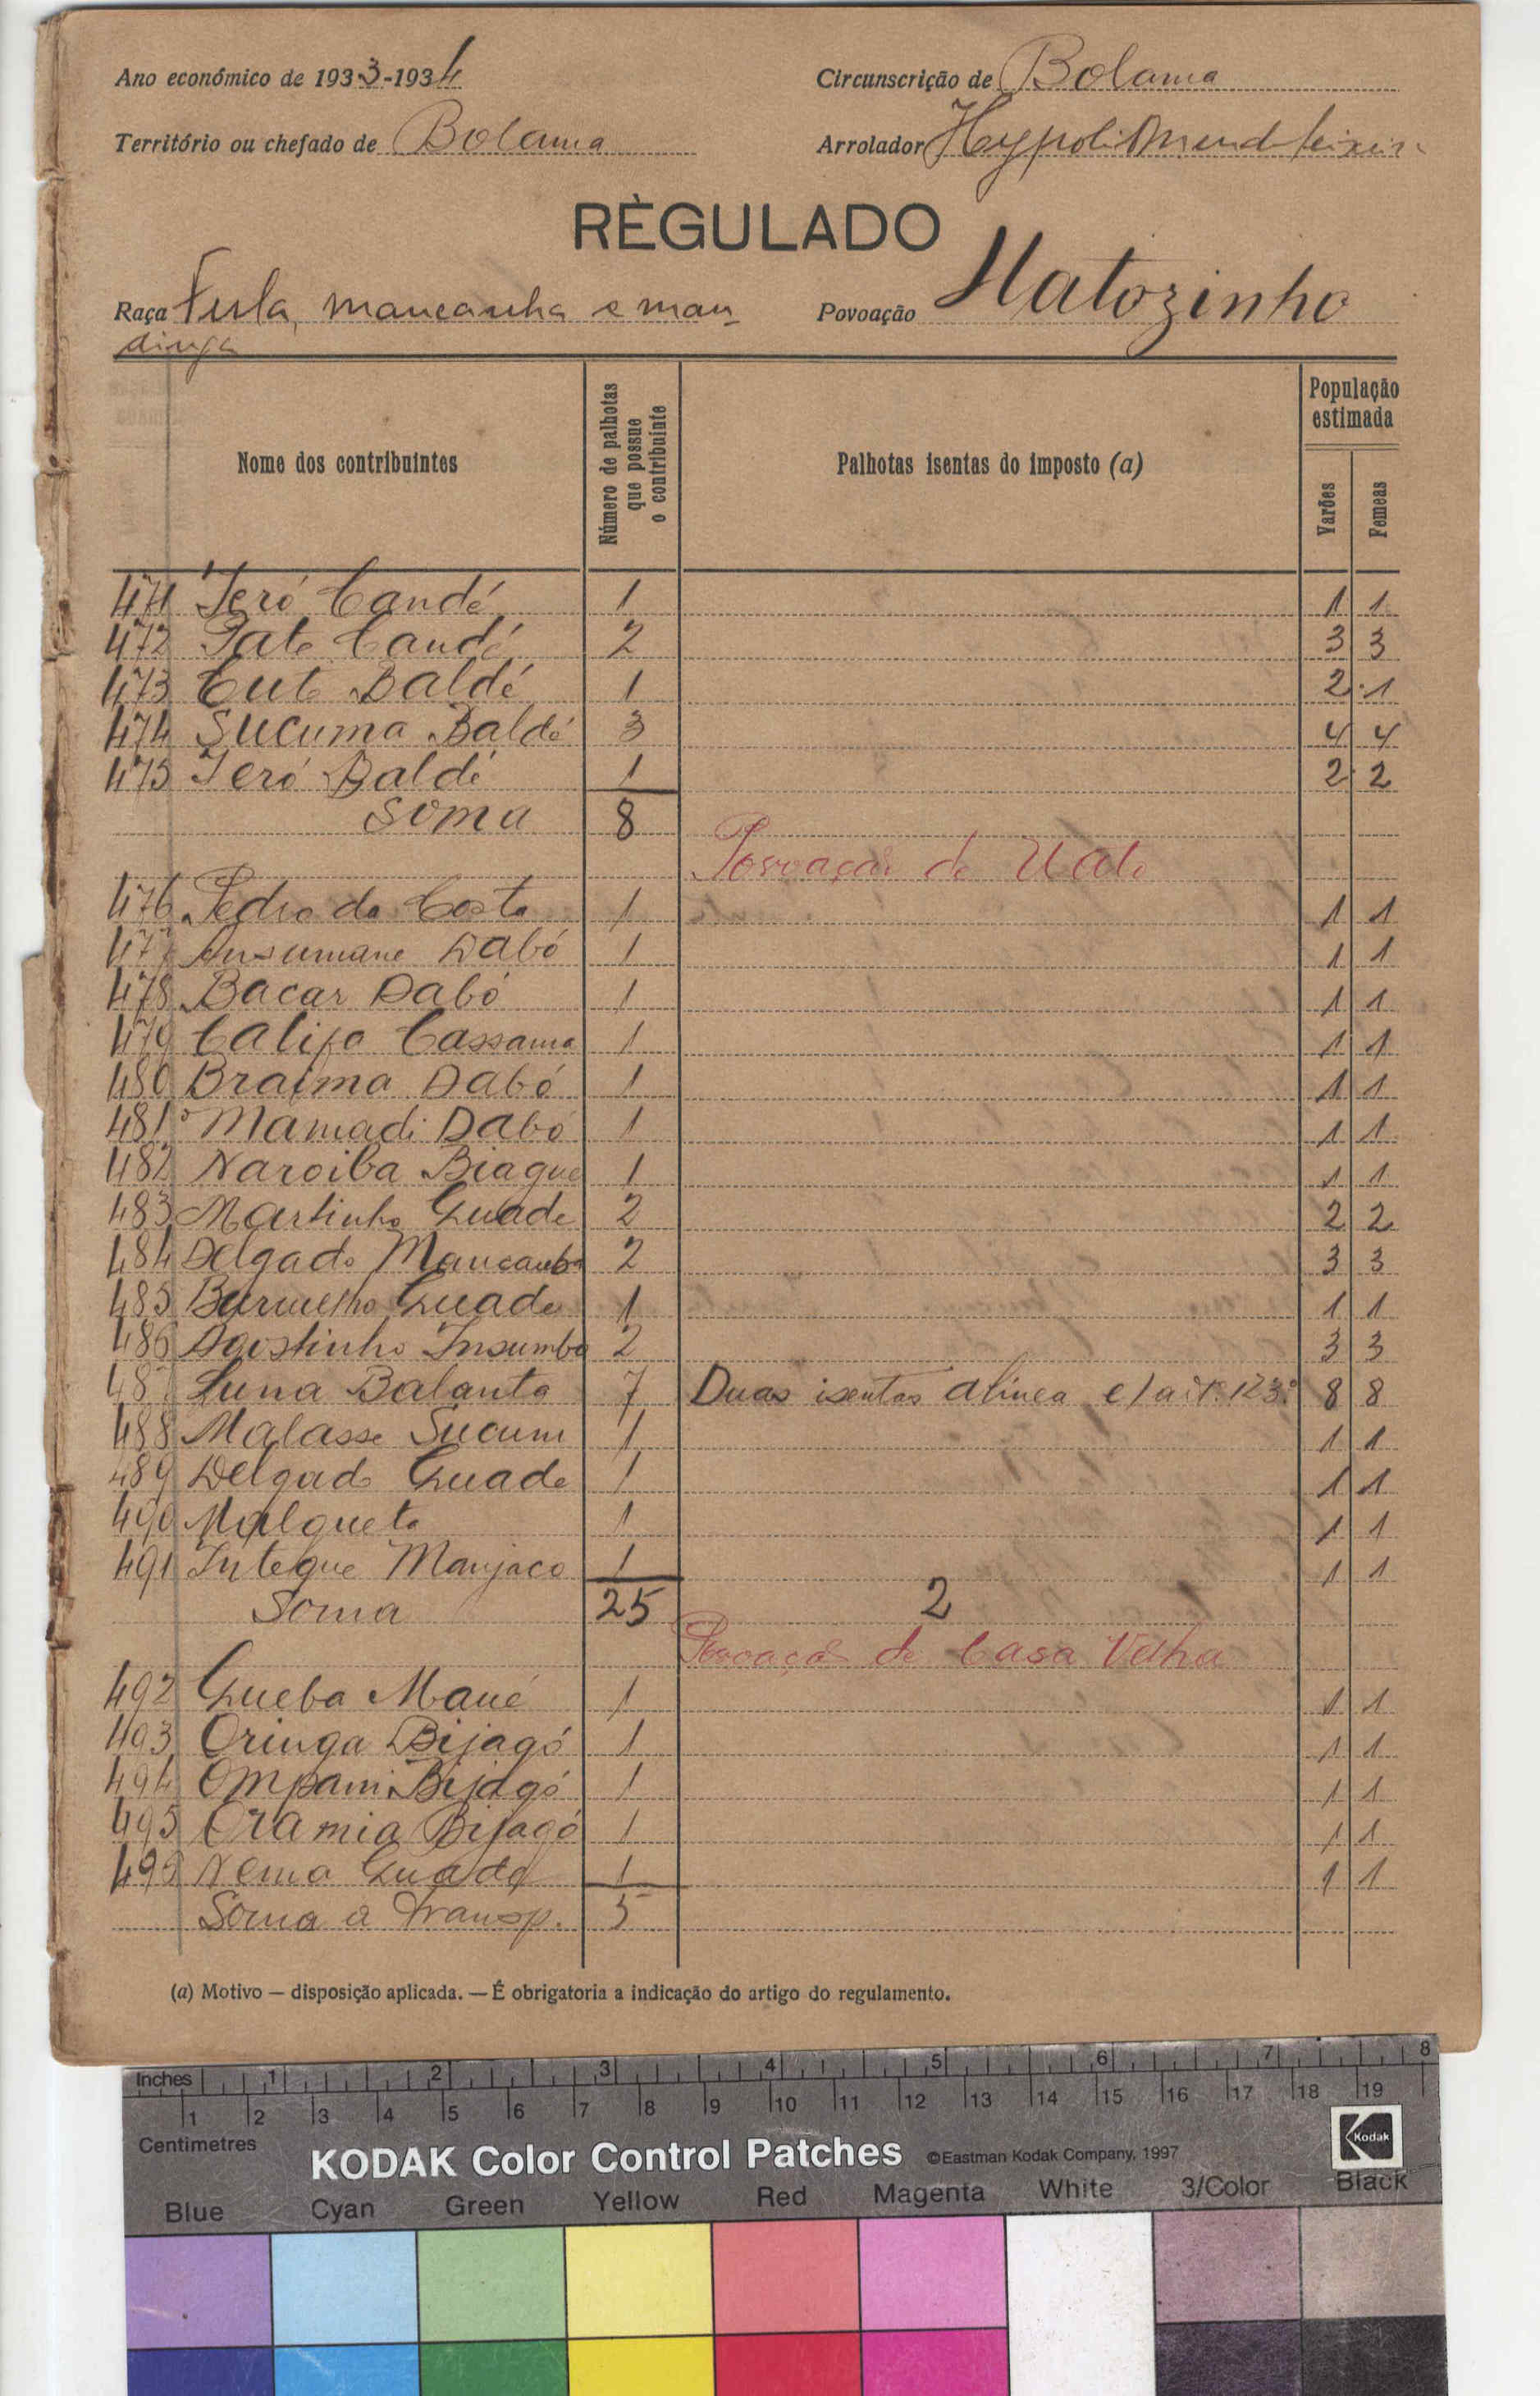 Ano económico de 1933-1934
Circunscrição de Bolama
Território ou chefado de Bolama
Arrolador
RÈGULADO
Raça Fula, mancanha e man
dinga
Povoação Matozinho
Nome dos contribuintes
Número de palhotas que possue o contribuinte
Palhotas isentas do imposto (a)
População estimada
Varões
Femeas
471 Jeró Candé 1 1 1
472 Pate Candé 2 3 3
473 Cute Baldé 1 2 1
474 Sucuma Baldé 3 4 4
475 Jeró Baldé 1 2 2
Soma 8
Povoação de
476 Pedro da Costa 1 1 1
477 Ansumane Dabó 1 1 1
478 Bacar Dabó 1 1 1
479 Califa Cassama 1 1 1
480 Braima Dabó 1 1 1
481 Mamadi Dabó 1 1 1
482 Naroiba Biague 1 1 1
483 Martinho Quade 2 2 2
484 Delgado 2 3 3
485 Quade 1 1 1
486 Agostinho Insumba 2 3 3
487 Luna Balanta 7 Duas isentas alinea e) art. 123º 8 8
488 Malasse Sucum 1 1 1
489 Delgado Quade 1 1 1
490 Malgueta 1 1 1
491 Inteque Manjaco 1 1 1
Soma 25 2
Povoação de Casa Velha
492 Queba Mané 1 1 1
493 Oringa Bijagó 1 1 1
494 Ompani Bijagó 1 1 1
495 Oramia Bijagó 1 1 1
495 Nema Quade 1 1 1
Soma a transp. 5
(a) Motivo — disposição aplicada. — É obrigatoria a indicação do artigo do regulamento.
Inches 1 2 3 4 5 6 7 8
1 2 3 4 5 6 7 8 9 10 11 12 13 14 15 16 17 18 19
Centimetres
KODAK Color Control Patches ©Eastman Kodak Company, 1997
Kodak
Blue Cyan Green Yellow Red Magenta White 3/Color Black